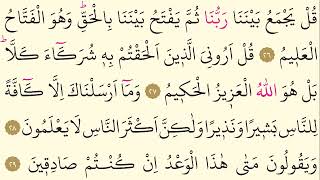 قُلْ يَجْمَعُ بَيْنَنَا رَبُّنَا ثُمَّ يَفْتَحُ بَيْنَنَا بِالْحَقِّ وَهُوَ الْفَتَّاحُ
الْعَل۪يمُ ٢٦ قُلْ اَرُونِيَ الَّذ۪ينَ اَلْحَقْتُمْ بِه۪ شُرَكَٓاءَ كَلَّاۜ
بَلْ هُوَ اللّٰهُ الْعَز۪يزُ الْحَك۪يمُ ٢٧ وَمَٓا اَرْسَلْنَاكَ اِلَّا كَٓافَّةً
لِلنَّاسِ بَش۪يرًا وَنَذ۪يرًا وَلٰكِنَّ اَكْثَرَ النَّاسِ لَا يَعْلَمُونَ ٢٨
وَيَقُولُونَ مَتٰى هٰذَا الْوَعْدُ اِنْ كُنْتُمْ صَادِق۪ينَ ٢٩